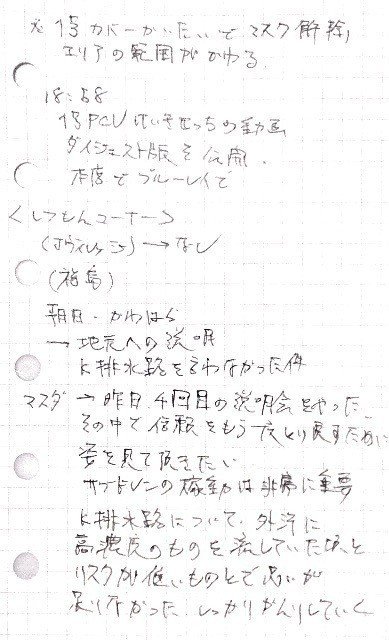 ※1号カバーかいたいでマスク解除
エリアの範囲がかわる。
18:58
1号PCV けいきせっちの動画
ダイジェスト版を公開、
本店でブルーレイで
<しつもんコーナー>
→なし
(福島)
朝日・かわはら
→地元への説明
K排水路を言わなかった件
マスダ→昨日、4回目の説明会をやった、
その中で信頼をもう一度とり戻すために
姿を見て頂きたい
サブドレンの稼動は非常に重要
K排水路について、外洋に
高濃度のものを流していた頃と
リスクが低いものとで思いが
足りなかった しっかりかんりしていく